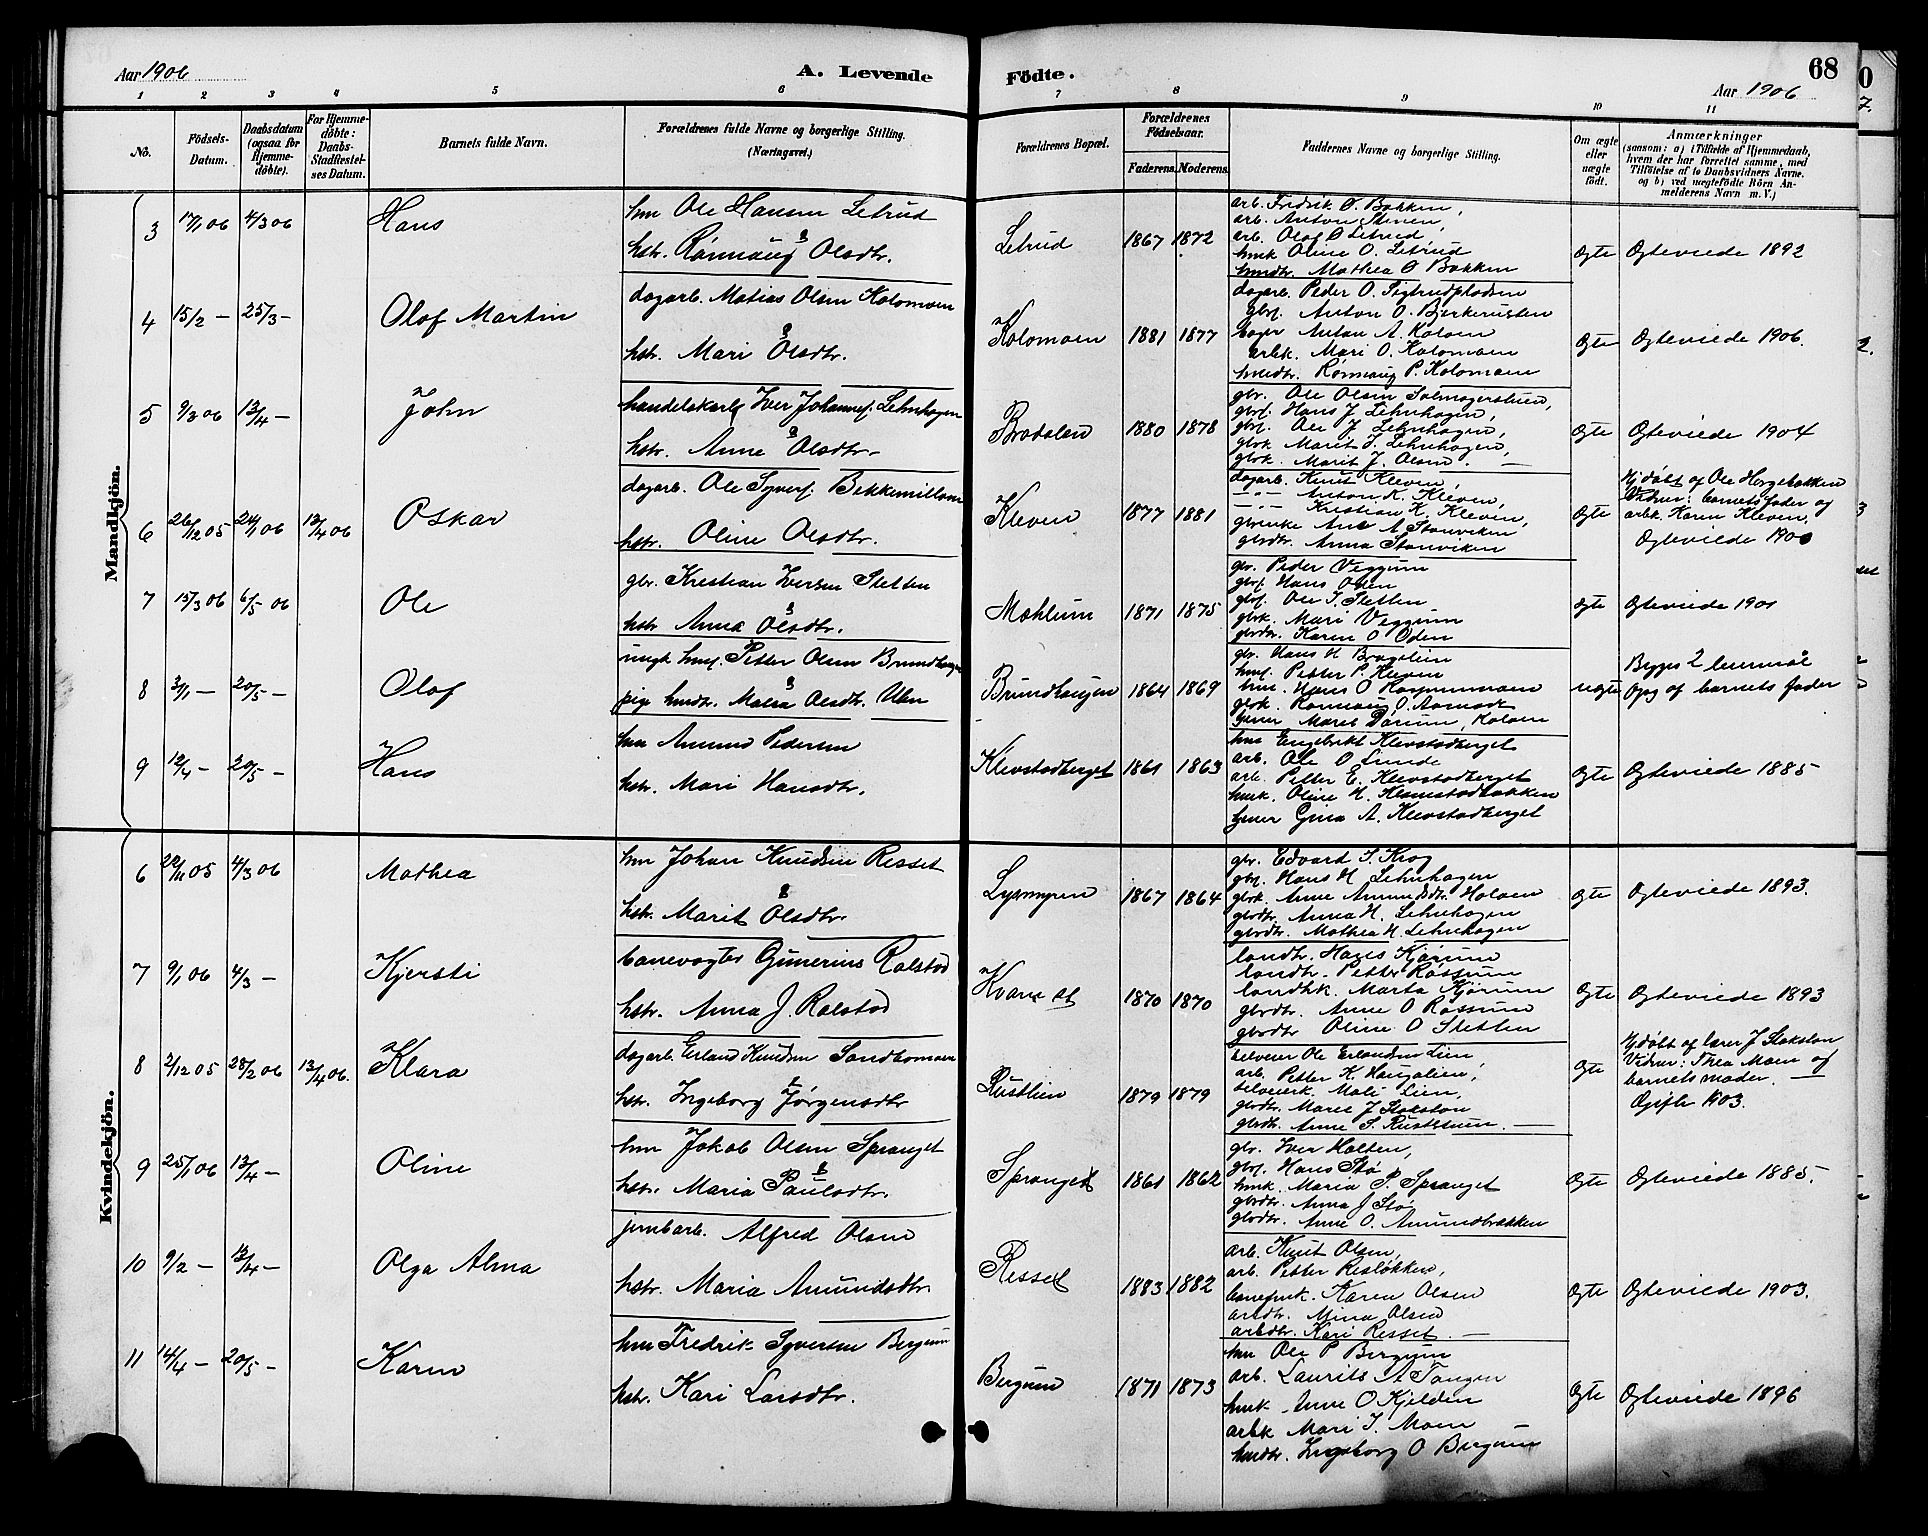 Aar 1906
A. Levende
Födte.
68
Aar 1906
1 2 3 4 5 6 7 8 9 10 11
No.
Födsels-Datum.
Daabsdatum (ogsaa for Hjemme-döbte).
For Hjemme-döbte: Daabs-Stadfæstel-ses Datum.
Barnets fulde Navn.
Forældrenes fulde Navne og borgerlige Stilling. (Næringsvei.)
Forældrenes Bopæl.
Forældrenes Födselsaar.
Faderens. Moderens.
Faddernes Navne og borgerlige Stilling.
Om ægte eller uægte födt.
Anmærkninger (saasom: a) i Tilfælde af Hjemmedaab, hvem der har forrettet samme, med Tilföielse af to Daabsvidners Navne. og b) ved uægtefödte Börn An-melderens Navn m. V.)
Mandkjön.
3 17/1 06 4/3 06 Hans
hm Ole Hansen Letrud
hstr. Rønnaug Olsdtr.
Letrud 1867 1872
arb. Fredrik O. Bakken,
arb. Anton Steven,
arb. Olaf O Letrud,
hmk Oline O. Letrud
hmdtr. Mathea O Bakken
Ægte Ægteviede 1892
4 15/2 – 25/3 – Olaf Martin
dagarb. Matias Olsen Kolomoen
hstr. Mari Olsdtr.
Kolomoen 1881 1877
dagarb. Peder O. Sigtrudpladsen
gbsf. Anton O. Bjerkerusten
bager Anton A. Koloen
arbk. Mari O. Kolomoen
hmdtr. Rønnaug P. Kolomoen
Ægte Ægteviede 1906.
5 9/3 06 13/4 – John
handelskarl Iver Johannes. Lehnhagen
hstr. Anne Olsdtr.
Brodalen 1880 1878
gbr. Ole Olsen
gbsf. Hans J Lehnhagen,
gbsf. Ole J Lehnhagen,
gbrk Marit J. Lehnhagen,
gbrk. Marit J. Olsen. –
Ægte Ægteviede 1904
6 26/12 05 24/1 06 13/4 06 Oskar
dagarb. Ole Syvers. Bekkemellom
hstr. Oline Olsdtr.
Kleven 1877 1881
dagarb. Knut Kleven,
–"– Anton K. Kleven,
–"– Kristian K. Kleven,
gbrenke Ane A Stenviken
gbrdtr. Anna Stenviken
Ægte
Hj.døbt af Ole Horgebakken
Vidner: barnets fader og
arbk. Karen Kleven.
Ægteviede 1900
7 15/3 06 6/5 06 Ole
gbr. Kristian Iversen Sletten
hstr Anna Olsdtr.
Mæhlum 1871 1875
gbr. Peder Veggum
gbsf. Hans Oden
gbsf. Ole I. Sletten
gbrk. Mari Veggum
gbrdtr. Karen O Oden
Ægte Ægteviede 1901
8 3/1 – 20/5 – Olaf
ungk. hmsf. Petter Olsen Brundhaugen
pige hmdtr. Malea Olsdtr.
Brundhaugen 1864 1869
gbr. Hans H
hmsf. Petter P. Kleven
hm. Hans O
gbrk. Rønnaug O.
tjener Marit Koloen
uægte
Begges 2 leiermål
Opg af barnets fader
9 12/4 – 20/5 – Hans
hm Amund Pedersen
hstr. Mari Hansdtr.
Klevstadberget 1861 1863
hm Engebrikt Klevstadberget
arb. Ole O Lunde
arb. Petter E. Klevstadberget
hmk. Oline H. Klevstadbakken
tjener Gina A. Klevstadberget
Ægte Ægteviede 1885
Kvindekjön.
6 20/11 05 4/3 06 Mathea
hm Johan Knudsen Resset
hstr. Marit Olsdtr.
Lysmyren 1867 1864
gbr. Edvard I. Krog
gbsf. Hans H. Lehnhagen
gbrk. Anne Amundsdtr Holoen
gbrdtr. Anna H. Lehnhagen
gbrdtr. Mathea H. Lehnhagen
Ægte Ægteviede 1893.
7 9/1 06 4/3 – Kjersti
banevogter Gunerius Ralstad
hstr. Anna J. Ralstad
Kvam st 1870 1870
landh. Hans Kjørum
landh. Petter Rossum
landhk. Marta Kjørum
gbrdtr. Anne O Rossum
gbrdtr Oline O Sletten
Ægte Ægteviede 1893
8 2/12 05 28/2 06 13/4 06. Klara
dagarb. Erland Knudsen Sandbomoen
hstr. Ingeborg Jørgensdtr
Rustlien 1879 1879
selveier Ole Erlandsen Lien,
arb. Petter K. Haugalien,
selveierk. Mali Lien,
gbrdtr. Marie J Stokstøn
gbrdtr. Anne S. Ruststuen. –
Ægte
Hj.døbt af lærer J Stokstøn
Vidner: Thea Moen og
barnets moder. –
Ægift 1903.
9 25/1 06 13/4 – Oline
hm Jokob Olsen Spranget
hstr. Maria Paulsdtr.
Spranget 1861 1862
gbr. Iver Holten,
gbsf. Hans Stø
hmk. Maria P. Spranget
gbrdtr. Anna J Stø
gbrdtr. Anne O. Amundbrækken
Ægte Ægteviede 1885.
10 9/2 – 13/4 – Olga Alma
jernbarb. Alfred Olsen
hstr. Maria Amundsdtr.
Resset 1883 1882
arb. Knut Olsen,
arb. Petter Resløkken,
banefmk. Karen Olsen
arbdtr. Mina Olsen
arbdtr. Kari Resset. –
Ægte Ægteviede 1903.
11 14/4 – 20/5 – Karen
hm Fredrik Syversen Bergum
hstr. Kari Larsdtr.
Bergum 1871 1873
hm Ole P Bergum
arb. Laurits A Tangen
hmk. Anne O Kjelden
arbk Mari I. Moen –
hmdtr. Ingeborg O Bergum
Ægte Ægteviede 1896